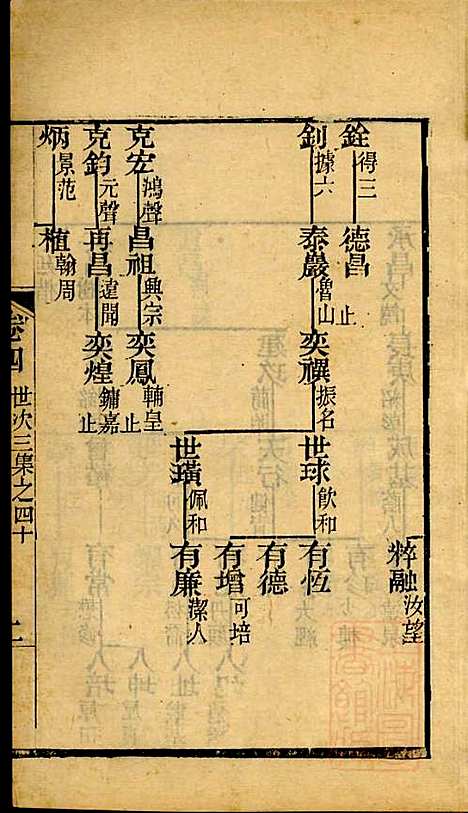 粹融汝望
銓得三
德昌止
釗據六
泰嚴魯山
奕禩振名
世球飲和
有恆
有德
有增可培
世璜佩和
有廉潔人
克宏鴻聲
昌祖興宗
奕鳳輔皇
克鈞元聲
再昌達聞
奕煌鏞嘉止
炳景范
植翰周
卷四 世次三集之四十 二